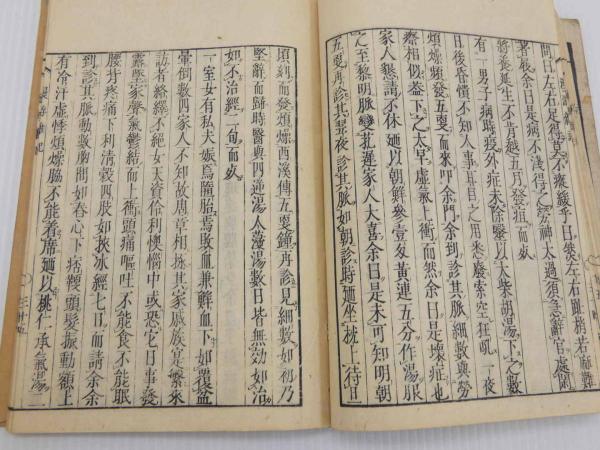 問曰左右足得莫不痿緩乎曰然左右趾稍若麻
著辰余曰是病不淺得之勞神太過須急辭官處閑
將養延生不肯越五月發疽而歿
有一男子病時疫外症未除醫以大柴胡湯下之數
日後昏憒不知人事耳目之用悉廢索空狂吼一夜
煩燥頻發五更而來叩余門余到診其脈細數與勞
瘵相似蓋下之太早虛氣上衝而然余曰是壞症也
家人懇請不休廼以朝鮮參壹匁黃連五分作湯服
之至黎明脈變扎遲家人大喜余曰是未可知明朝
五更再診其翠夜診其脈如朝診時廼坐枕上待旦
頃刻而發煩燥西溪傳五更鐘再診見細數如初乃
堅辭而歸時醫與四逆湯人參湯數日皆無効如治
如不治經一旬而歿
一室女有私夫娠爲墮胎焉敗血兼鮮血下如覆盆
暈倒數四家人不知故周章相拯其家戚族寔繁來
訪者絡繹不絕女天資伶利懊惱中或恐它日事發
露墜家聲氣鬱結而上衝頭痛嘔吐不能食不能眠
腰拊疼痛下利清穀四肢如挾冰經七日而請余余
到診其脈動數胸間如舂心下痞鞕頭髮振動額上
有冷汗虛悸煩燥脇不能着席廼以桃仁承氣湯